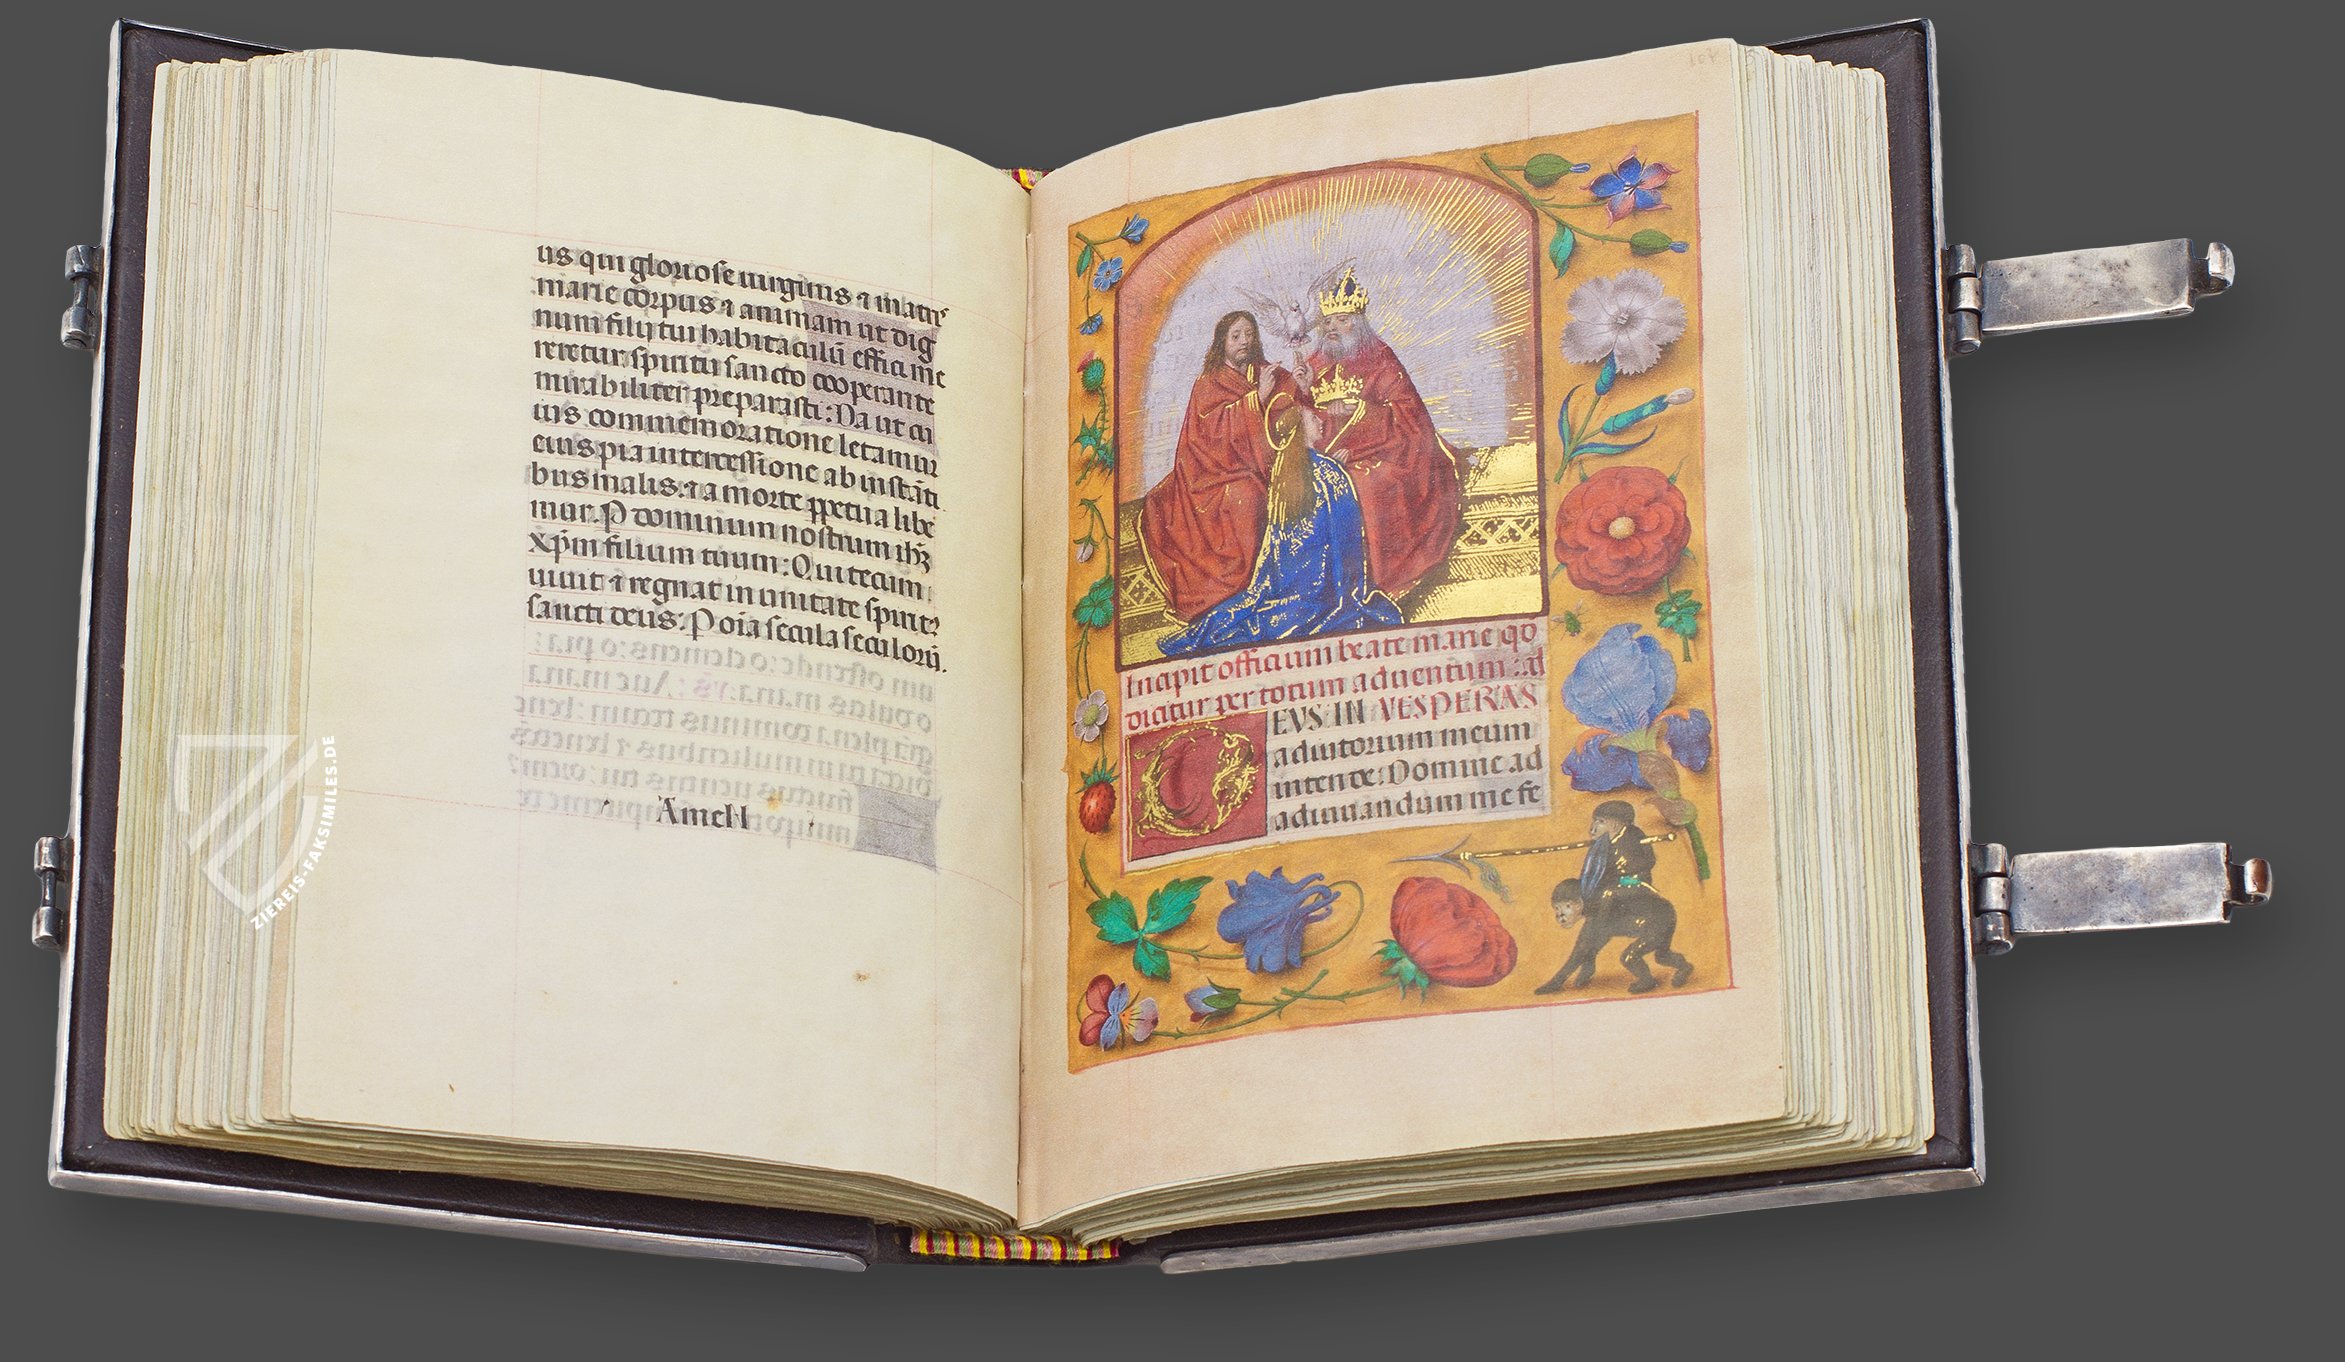 us qui gloriose uirginis ⁊ matrẏ
marie corpus ⁊ animam ut dig
num filij tui habitaculū effici me
reretur spiritu sancto cooperante
mirabiliter preparasti: Da ut cu
ius commemoratione letamur
eius pia intercessione ab instāti
bus malis. ⁊ a morte ꝓpetua libe
mur. P dominum nostrum ihꝫ
xp̄m filium tuum: Qui tecum
uiuit ⁊ regnat in unitate spirit⁹
sancti deus. P oīa secula seculorū.
Amen
ZIEREIS-FAKSIMILES.DE
107
Incipit officium beate marie qd
dicitur per totum aduentum: ad
EVS IN VESPERAS
adiutorium meum
intende: Domine ad
adiuuandum me fe